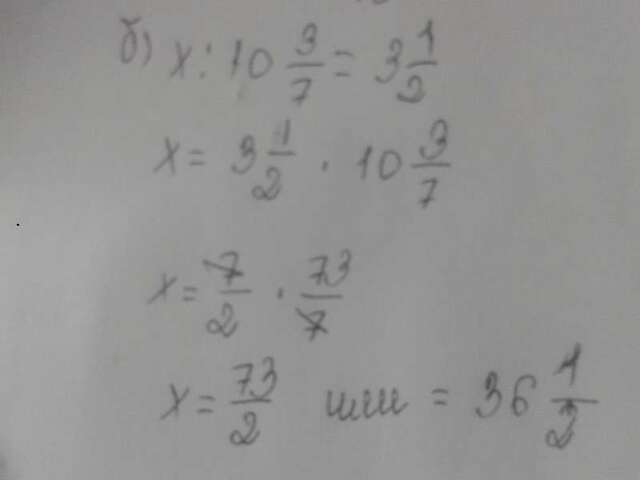 б) x : 10 3/7 = 3 1/2
x = 3 1/2 · 10 3/7
x = 7/2 · 73/7
x = 73/2 или = 36 1/2